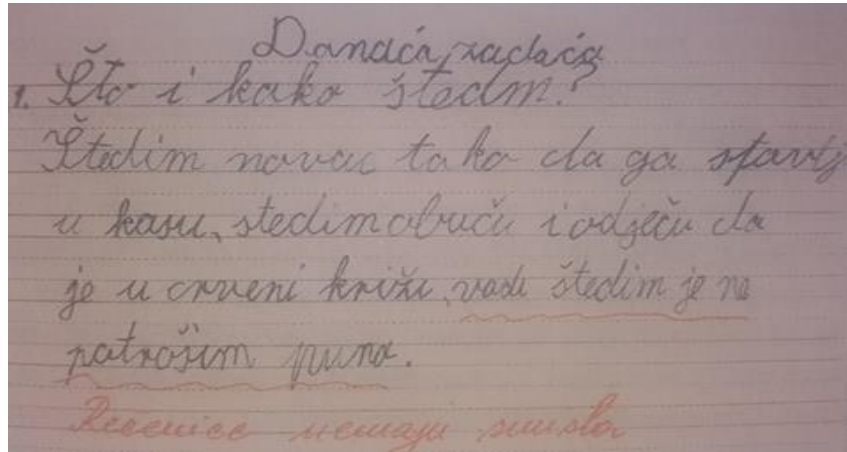 Domaća zadaća
1. Što i kako štedim?
Štedim novac tako da ga stavlj
u kasu, stedim obuču i odječu da
je u crveni križu, vodu štedim je ne
potrošim puno.
Rečenice nemaju smisla